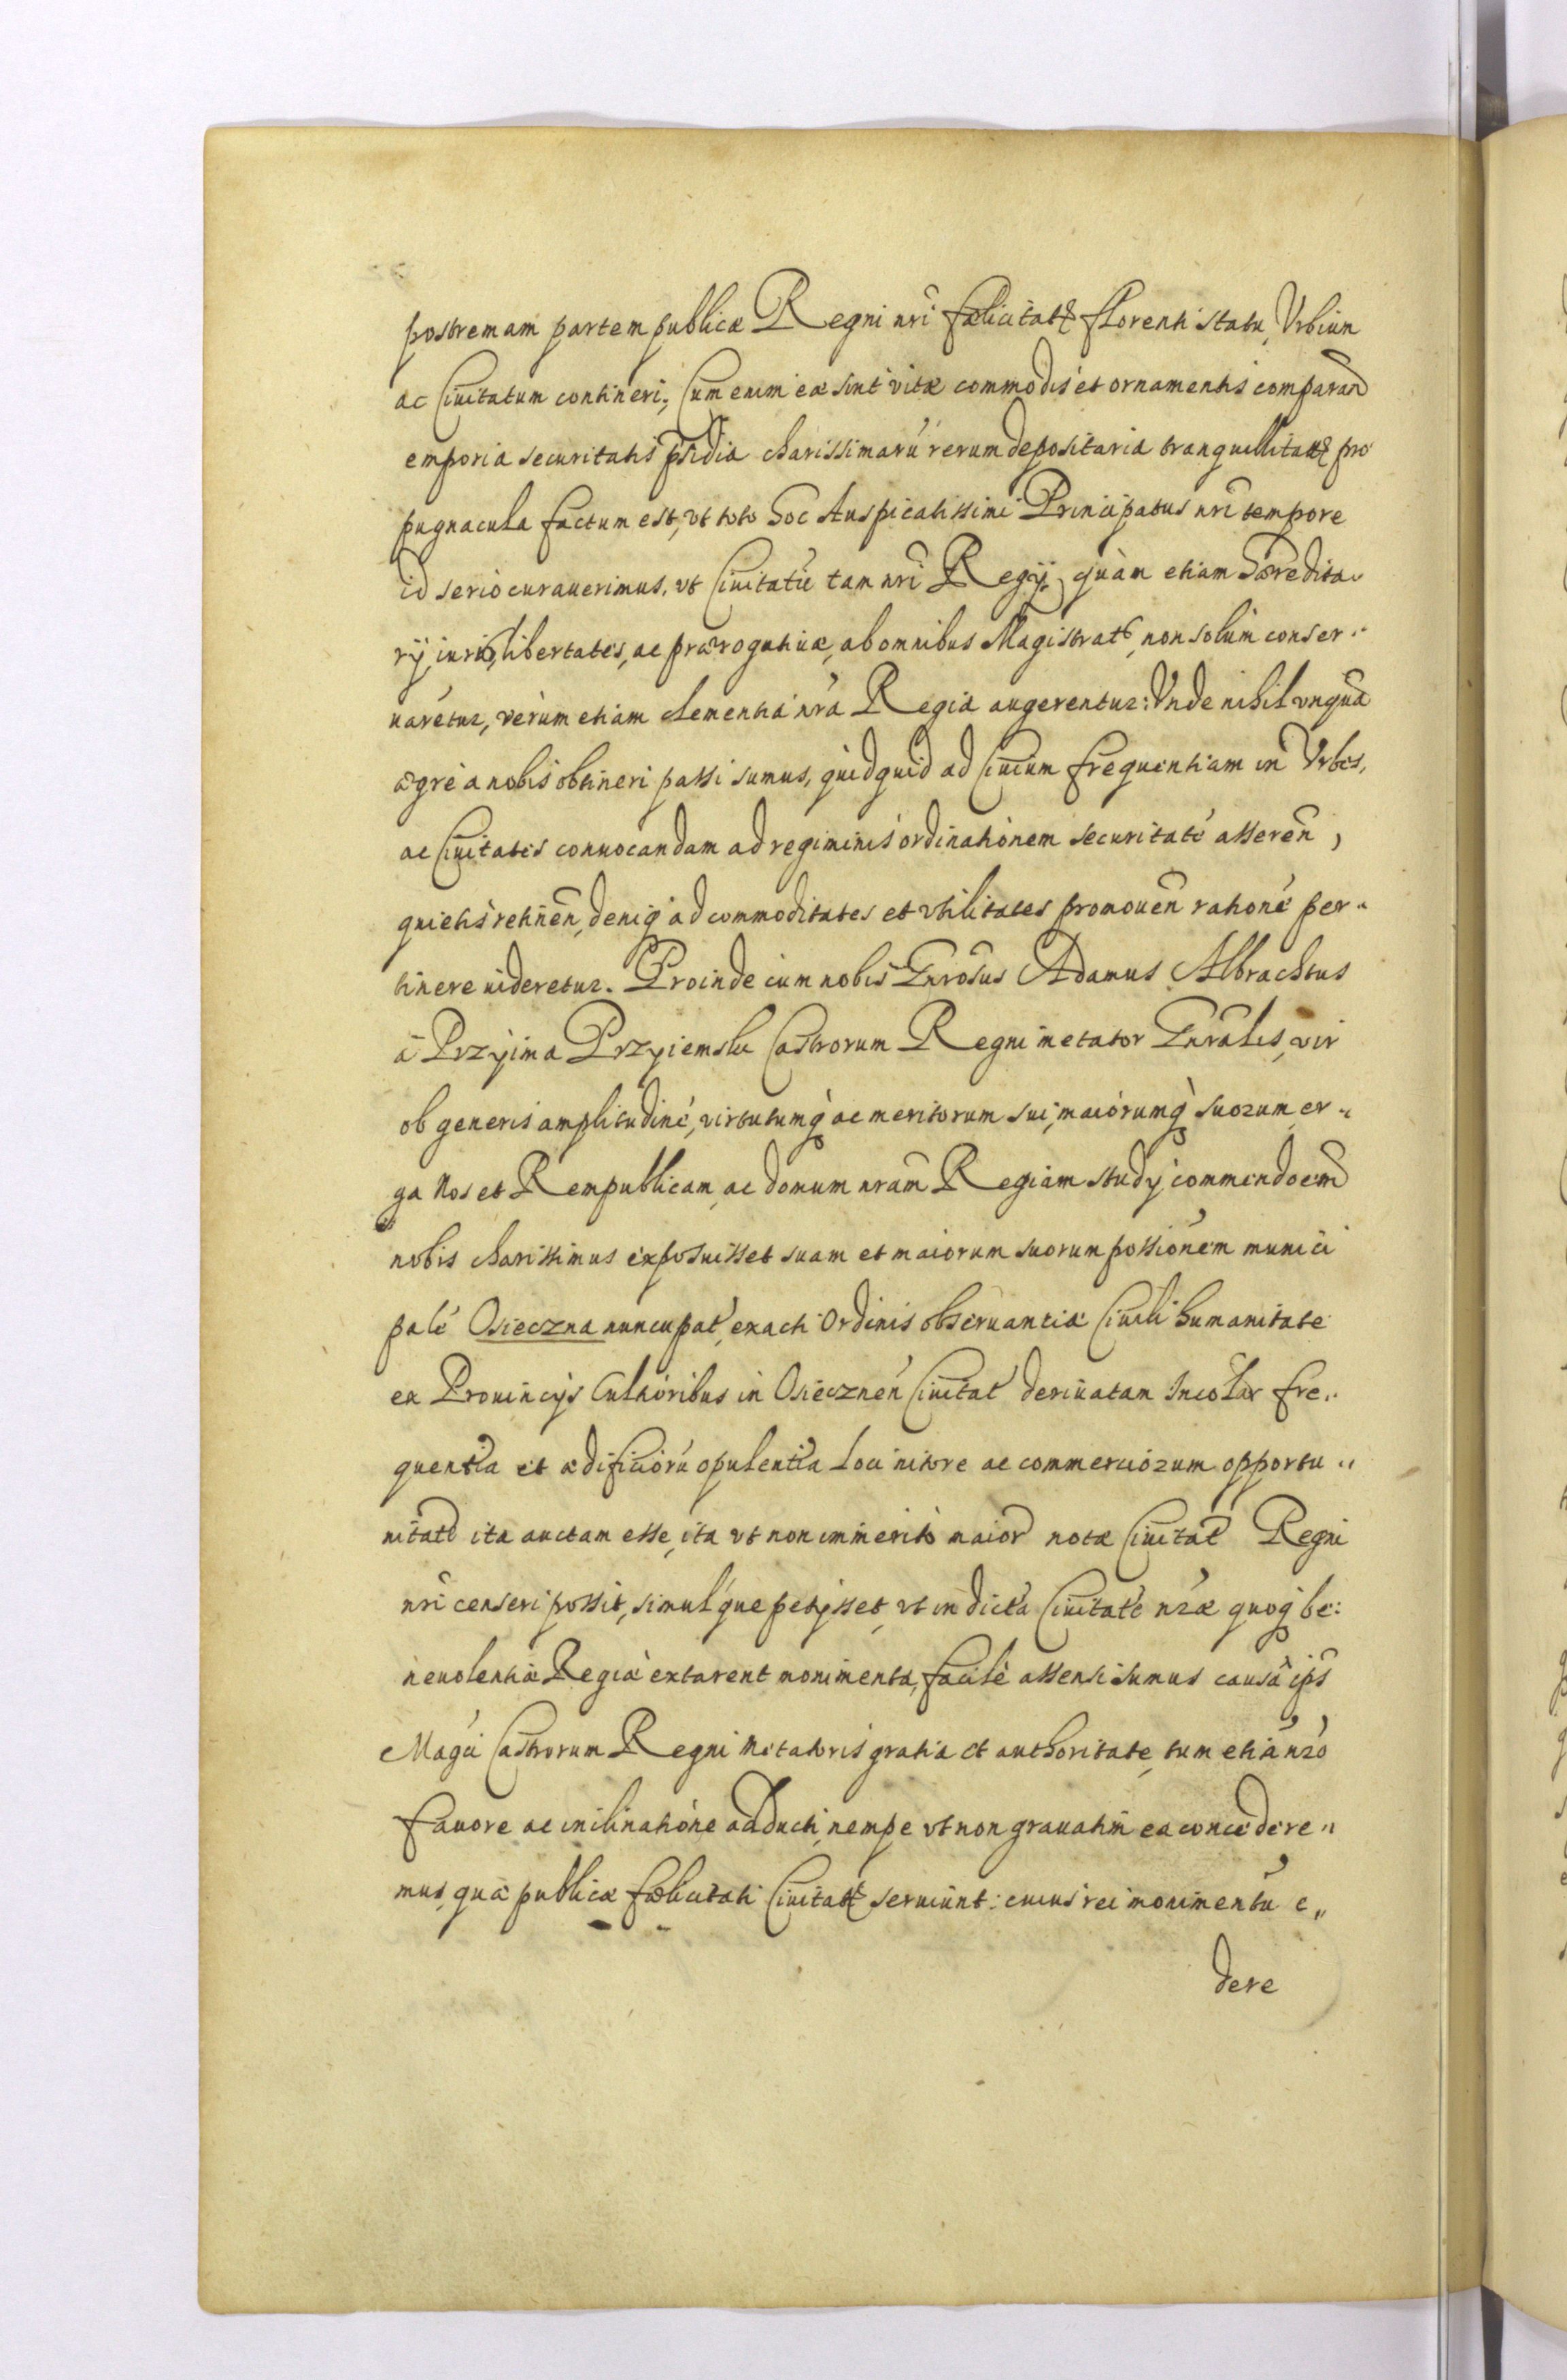 postremam partem publicæ Regni nri fælicitatꝭ florenti statu, Vrbium
ac Ciuitatum contineri; Cum enim eæ sint vitæ commodis et ornamentis comparand
emporia securitatis psidia charissimarú rerum depositaria tranquillitatꝭ pro
pugnacula factum est, vt toto hoc Auspicatissimi Principatus nri tempore
id serio curauerimus, vt Ciuitatú tam nri Regij, quàm etiam hæredita„
rij iuris, libertates, ac prærogatiuæ, ab omnibus Magistratꝰ, non solùm conser„
uarétur, verùm etiam clementia nra Regia augerentur: Vnde nihil vnqua
ægrè a nobis obtineri passi sumus, quidquid ad Ciuium frequentiam in Vrbes,
ac Ciuitates conuocandam ad regiminis ordinationem securitaté asseren,
quietis retinen, deniq ad commoditates et vtilitates promouen rationé per„
tinere uideretur. Proinde cum nobis Gnrosus Adamus Albrachtus
à Przyima Przyiemski Castrorum Regni metator Gnralis, vir
ob generis amplitudiné, virtutumq ac meritorum sui, maiorumq suorum er„
ga Nos et Rempublicam, ac domum nram Regiam studij commendoem
nobis charissimus exposuisset suam et maiorum suorum possionem munici
palé Osieczna nuncupat, exacti Ordinis obseruantia Ciuili humanitate
ex Prouincijs Cultioribus in Osiecznen Ciuitat deriuatam Incolar fre„
quentia et ædificiorú opulentia Loci nitore ac commerciorum opportu„
nitate ita auctam esse, ita vt non immeritò maior notæ Ciuitat Regni
nri censeri possit, simulque petijsset, vt in dicta Ciuitate nræ quoq be:
neuolentiæ Regiæ extarent monimenta, facilè assensi sumus causa ips
Magci Castrorum Regni Metatoris gratia et authoritate, tum etiá nro
fauore ac inclinatione adducti, nempe vt non grauatim ea concedere„
mus, quæ publicæ fælicitati Ciuitatꝭ seruiunt: cuius rei monimentú e„
dere